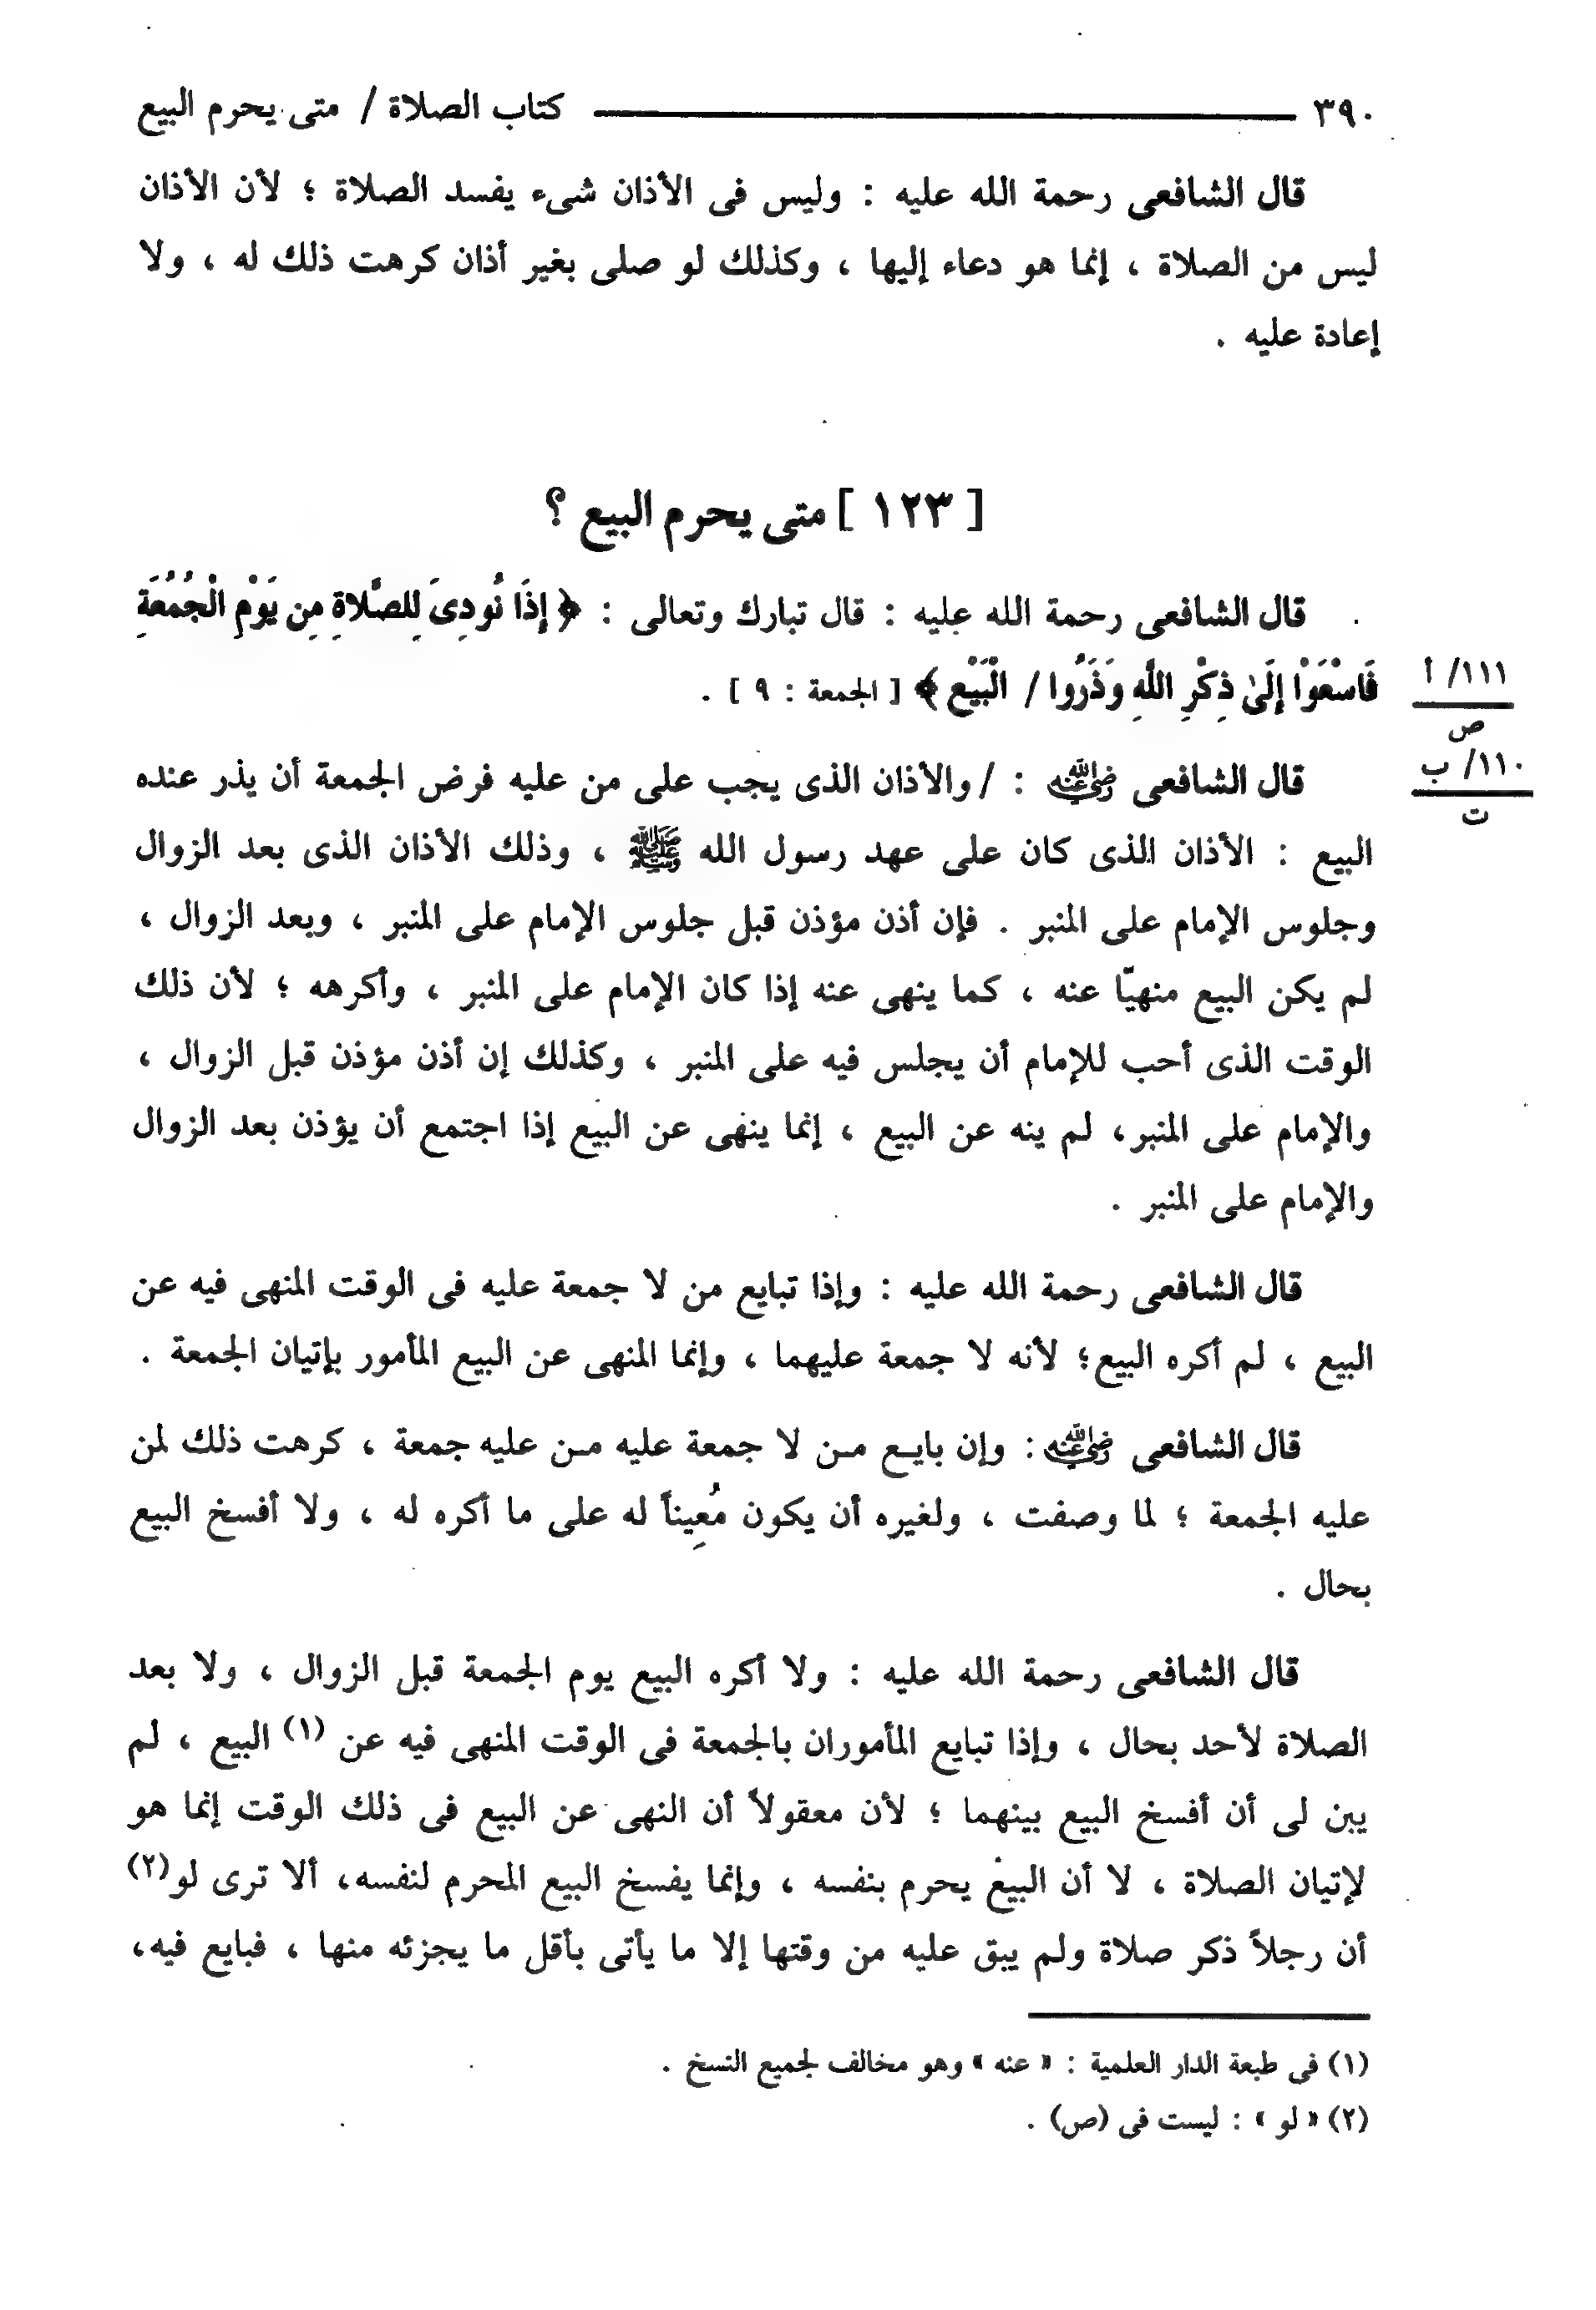 ٣٩٠ كتاب الصلاة / متى يحرم البيع
قال الشافعى رحمة الله عليه : وليس فى الأذان شىء يفسد الصلاة ؛ لأن الأذان
ليس من الصلاة ، إنما هو دعاء إليها ، وكذلك لو صلى بغير أذان كرهت ذلك له ، ولا
إعادة عليه .
[ ١٢٣ ] متى يحرم البيع ؟
قال الشافعى رحمة الله عليه : قال تبارك وتعالى : ﴿ إِذَا نُودِىَ لِلصَّلاةِ مِن يَوْمِ الْجُمُعَةِ
فَاسْعَوْا إِلَىٰ ذِكْرِ اللَّهِ وَذَرُوا / الْبَيْع ﴾ [ الجمعة : ٩ ] .
١١١/ أ
ص
قال الشافعى رضي الله عنه : / والأذان الذى يجب على من عليه فرض الجمعة أن يذر عنده
١١٠/ ب
ت
البيع : الأذان الذى كان على عهد رسول الله ﷺ ، وذلك الأذان الذى بعد الزوال
وجلوس الإمام على المنبر . فإن أذن مؤذن قبل جلوس الإمام على المنبر ، وبعد الزوال ،
لم يكن البيع منهيّا عنه ، كما ينهى عنه إذا كان الإمام على المنبر ، وأكرهه ؛ لأن ذلك
الوقت الذى أحب للإمام أن يجلس فيه على المنبر ، وكذلك إن أذن مؤذن قبل الزوال ،
والإمام على المنبر، لم ينه عن البيع ، إنما ينهى عن البيع إذا اجتمع أن يؤذن بعد الزوال
والإمام على المنبر .
قال الشافعى رحمة الله عليه : وإذا تبايع من لا جمعة عليه فى الوقت المنهى فيه عن
البيع ، لم أكره البيع؛ لأنه لا جمعة عليهما ، وإنما المنهى عن البيع المأمور بإتيان الجمعة .
قال الشافعى رضي الله عنه : وإن بايع من لا جمعة عليه من عليه جمعة ، كرهت ذلك لمن
عليه الجمعة ؛ لما وصفت ، ولغيره أن يكون مُعِيناً له على ما أكره له ، ولا أفسخ البيع
بحال .
قال الشافعى رحمة الله عليه : ولا أكره البيع يوم الجمعة قبل الزوال ، ولا بعد
الصلاة لأحد بحال ، وإذا تبايع المأموران بالجمعة فى الوقت المنهى فيه عن (١) البيع ، لم
يبن لى أن أفسخ البيع بينهما ؛ لأن معقولاً أن النهى عن البيع فى ذلك الوقت إنما هو
لإتيان الصلاة ، لا أن البيع يحرم بنفسه ، وإنما يفسخ البيع المحرم لنفسه، ألا ترى لو(٢)
أن رجلاً ذكر صلاة ولم يبق عليه من وقتها إلا ما يأتى بأقل ما يجزئه منها ، فبايع فيه،
(١) فى طبعة الدار العلمية : « عنه » وهو مخالف لجميع النسخ .
(٢) « لو » : ليست فى (ص) .